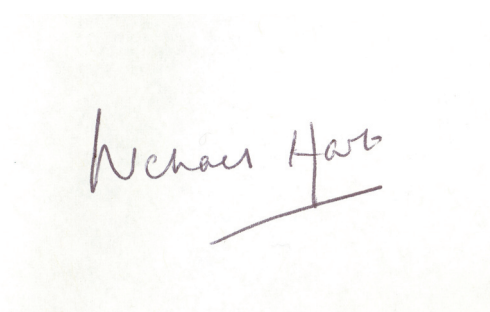 Michael Hart